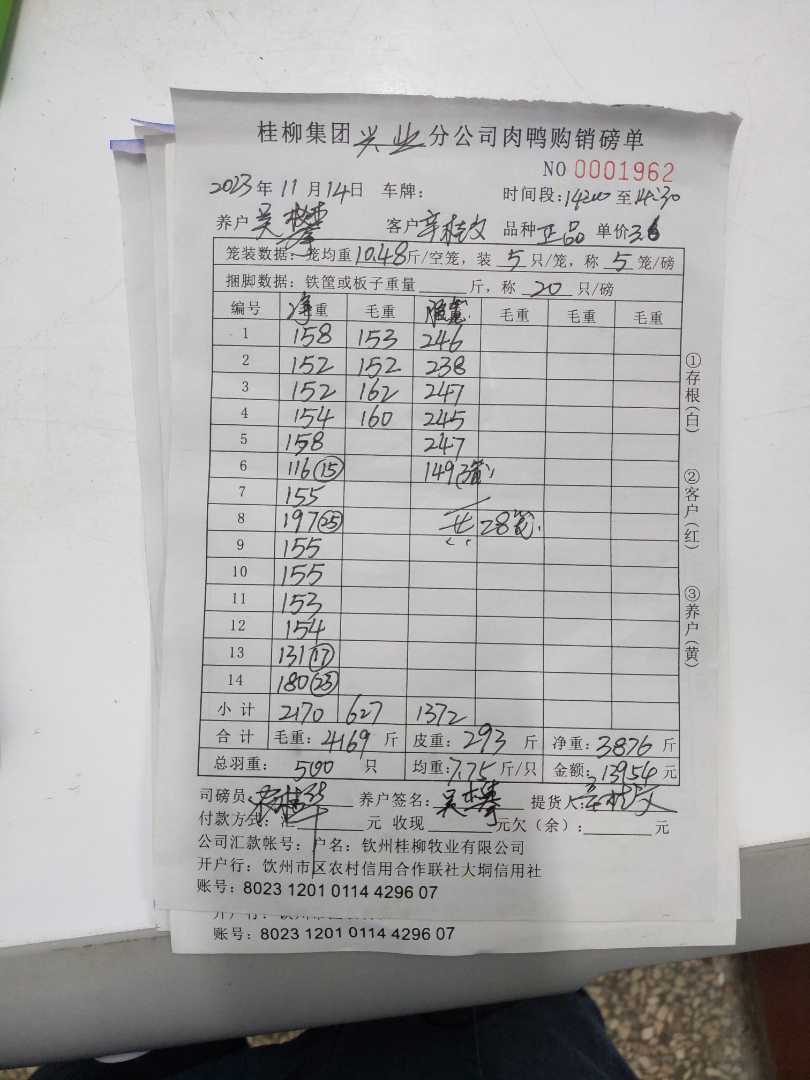 桂柳集团兴业分公司肉鸭购销磅单
NO 0001962
2023年11月14日 车牌: 时间段:14:00至14:30
养户吴 客户辛桂文 品种正品 单价3.6
笼装数据: 笼均重10.48斤/空笼, 装5只/笼, 称5笼/磅
捆脚数据: 铁筐或板子重量 斤, 称20只/磅
编号 净重 毛重 毛重 毛重 毛重
1 158 153 246
2 152 152 238
3 152 162 247
4 154 160 245
5 158 247
6 116(15) 149(3笼)
7 155
8 197(25) 共28笼.
9 155
10 155
11 153
12 154
13 131(17)
14 180(23)
小计 2170 627 1372
合计 毛重:4169斤 皮重:293斤 净重:3876斤
总羽重: 500只 均重:7.75斤/只 金额:13954元
司磅员: 养户签名:吴 提货人:辛桂文
付款方式:汇 元 收现 元欠(余): 元
公司汇款帐号: 户名: 钦州桂柳牧业有限公司
开户行: 饮州市区农村信用合作联社大垌信用社
账号: 8023 1201 0114 4296 07
账号: 8023 1201 0114 4296 07
①存根(白)
②客户(红)
③养户(黄)